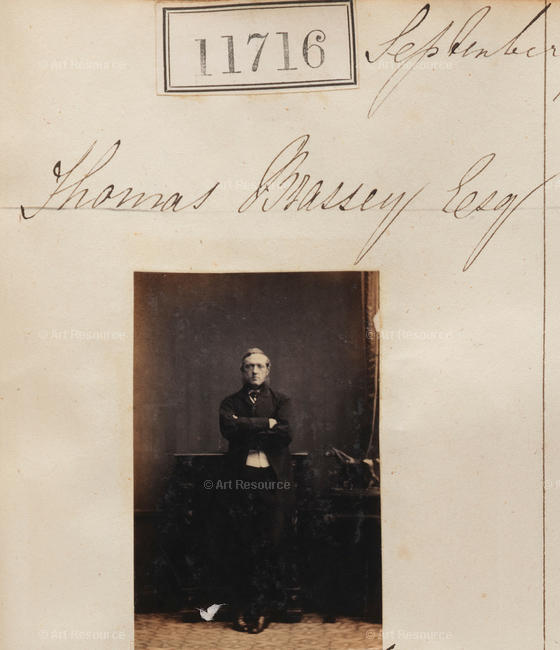 11716
September
Thomas Brassey Esq
© Art Resource
© Art Resource
© Art Resource
© Art Resource
© Art Resource
© Art Resource
© Art Resource
© Art Resource
© Art Resource
© Art Resource